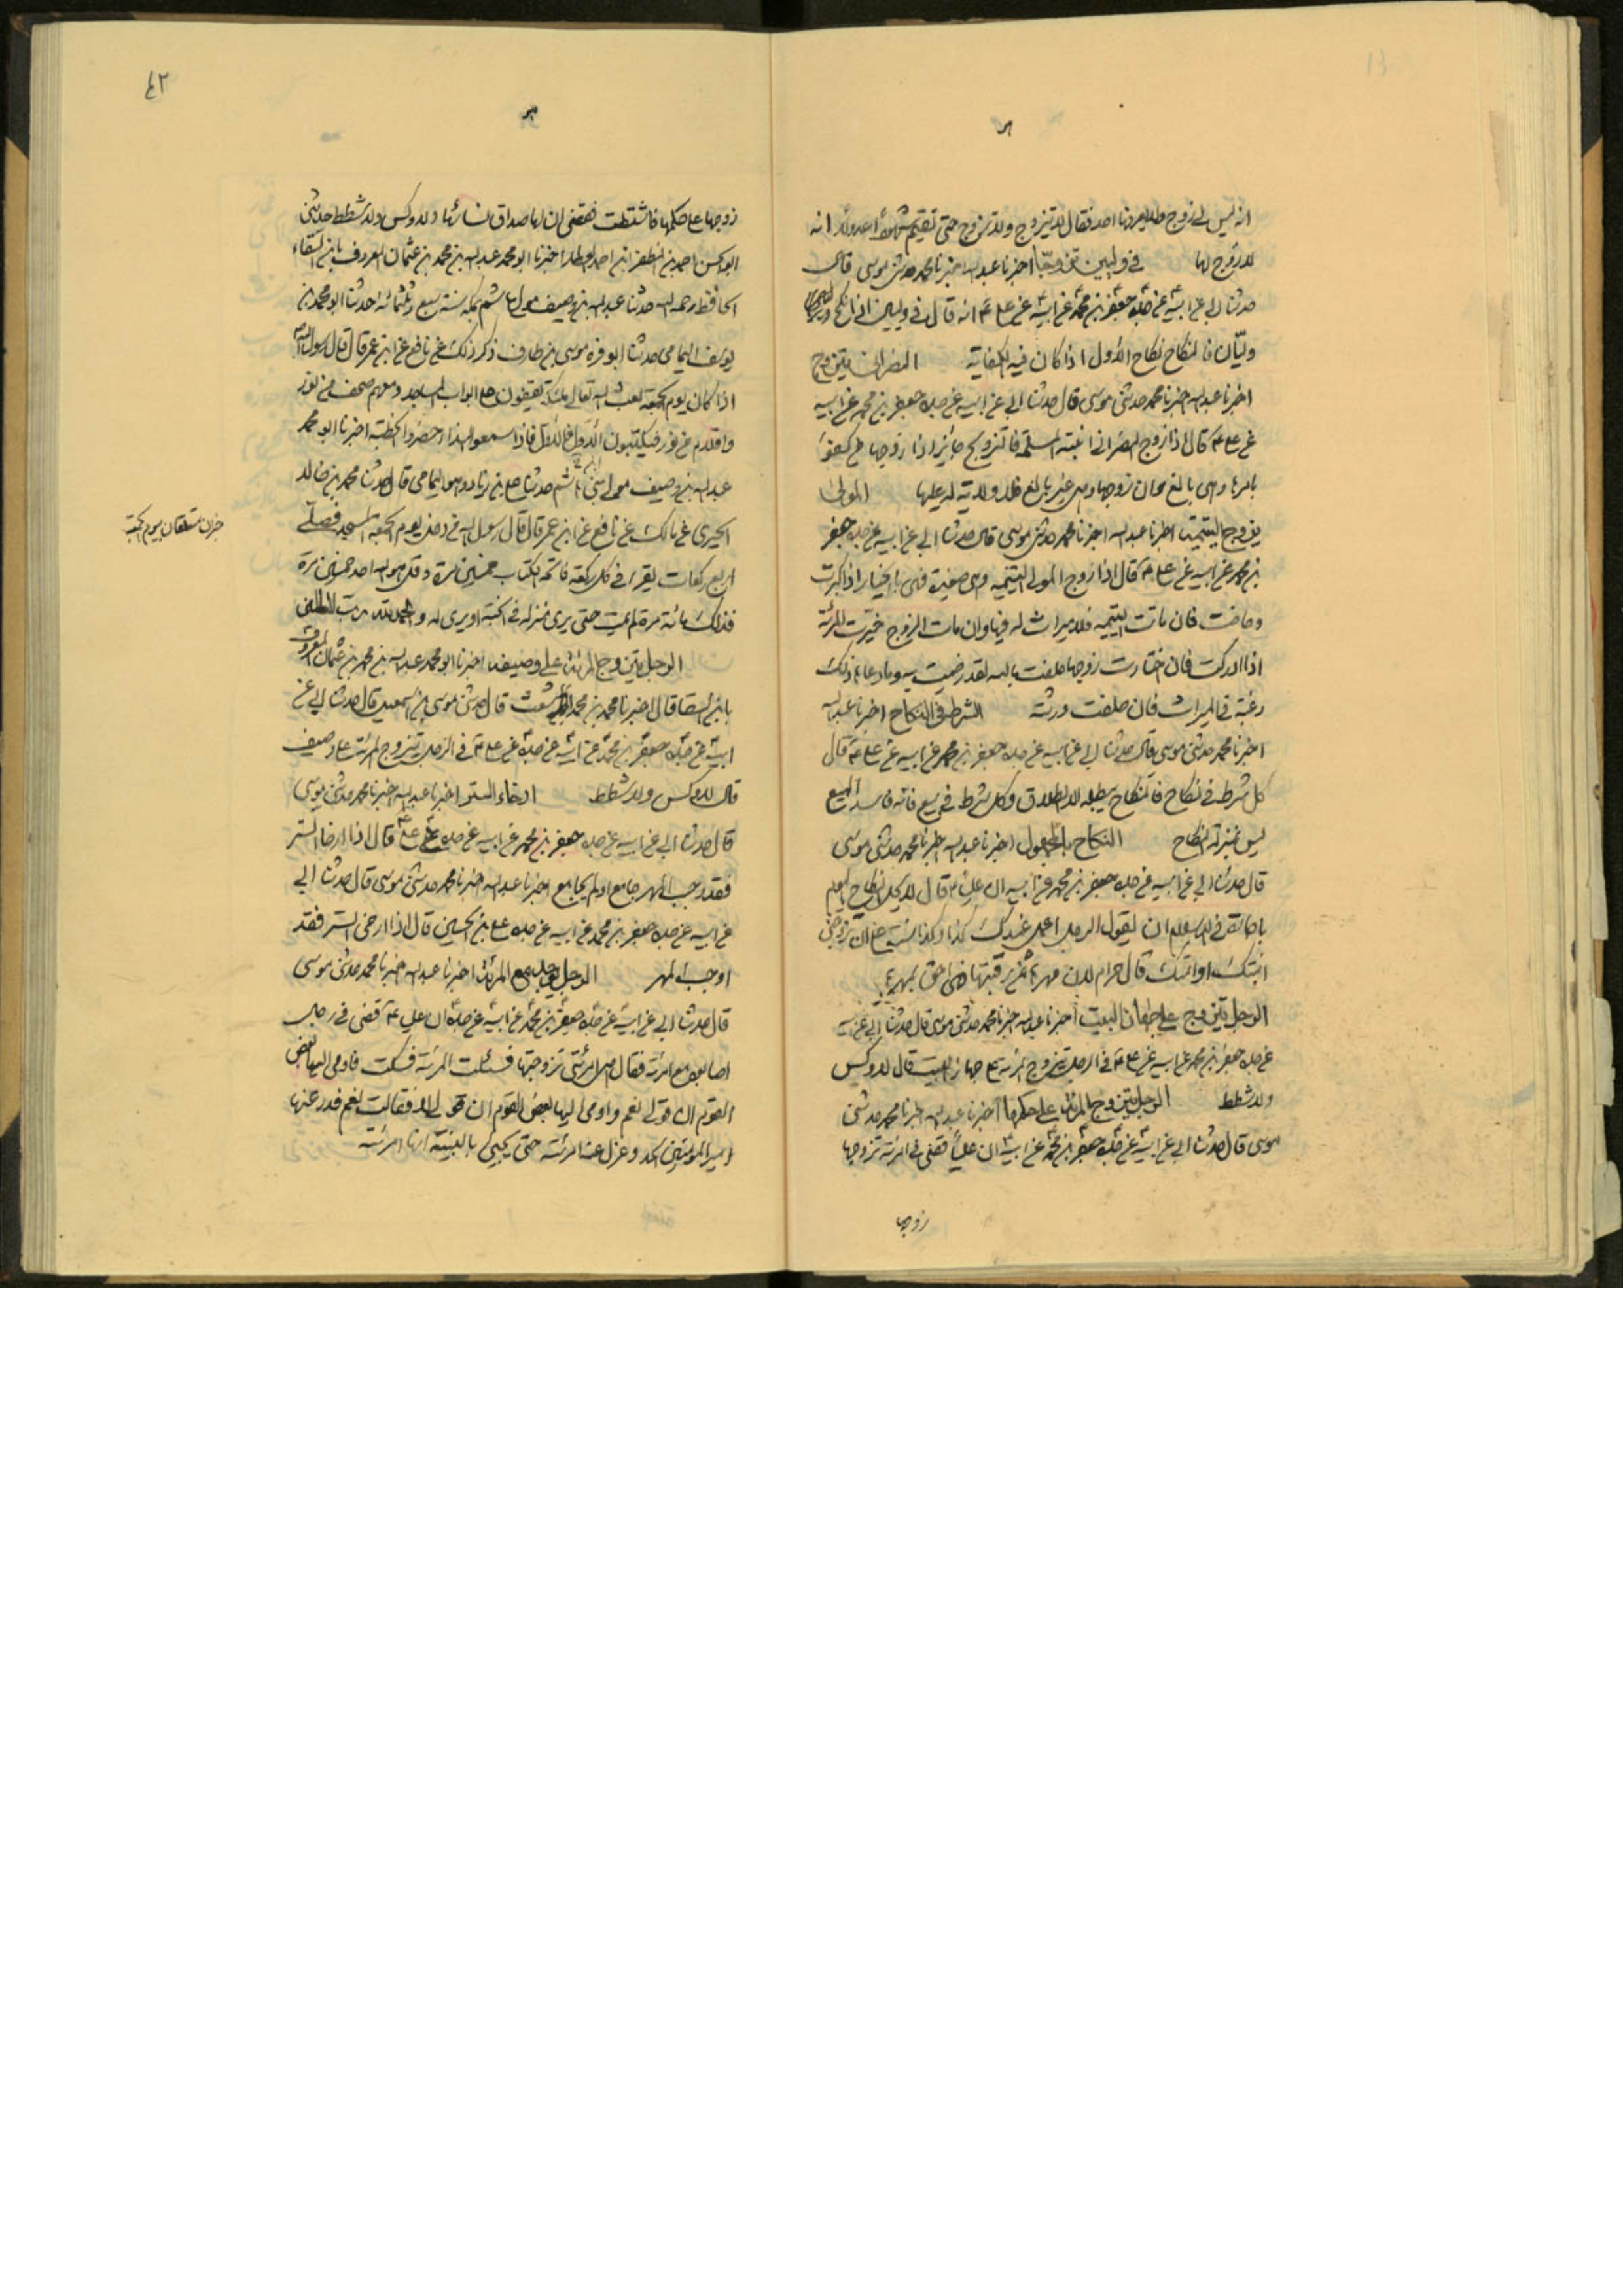 انه ليس لى زوج ولا يعرفنا احد فقال لا تتزوج ولا تزوج حتى تقيم شهودا عدولا انه
لا زوج لها في وليين تزوجا اخبرنا عبدالله اخبرنا محمد حدثنى موسى قال
حدثنا ابى عن ابيه عن جده جعفر بن محمد عن ابيه عن على ع انه قال في وليين اذا انكح
وليان فالنكاح نكاح الاول اذا كان فيه الكفاية النصرانى يتزوج
اخبرنا عبدالله اخبرنا محمد حدثنى موسى قال حدثنا ابى عن ابيه عن جده جعفر بن محمد عن ابيه
عن على ع قال اذا زوج النصرانى ابنته المسلمة فالتزويج جائز اذا زوجها من كفو
بامرها وهى بالغ وان زوجها وهى غير بالغ فلا ولاية له عليها المولى
يزوج اليتيمة اخبرنا عبدالله اخبرنا محمد حدثنى موسى قال حدثنا ابى عن ابيه عن جده جعفر
بن محمد عن ابيه عن على ع قال اذا زوج المولى اليتيمة وهى صغيرة فهى بالخيار اذا كبرت
وحاضت فان ماتت اليتيمة فلا ميراث له فيها وان مات الزوج خيرت المرئة
اذا ادركت فان اختارت زوجها حلفت بالله لقد رضيت به وما دعا لى ذلك
رغبة في الميراث فان حلفت ورثته الشرط في النكاح اخبرنا عبدالله
اخبرنا محمد حدثنى موسى قال حدثنا ابى عن ابيه عن جده جعفر بن محمد عن ابيه عن على ع قال
كل شرط في نكاح فالنكاح يبطله الا الطلاق وكل شرط في بيع فانه فاسد البيع
ليس بمنزلة النكاح النكاح بالمجهول اخبرنا عبدالله اخبرنا محمد حدثنى موسى
قال حدثنا ابى عن ابيه عن جده جعفر بن محمد عن ابيه ان عليا ع قال لا يحل النكاح اليوم
باجارة في الاسلام ان يقول الرجل اعمل عندك كذا وكذا سنة على ان تزوجنى
ابنتك او امتك قال حرام لان مهرها ثمن رقبتها فهى احق بمهرها
الرجل يتزوج على جهاز البيت اخبرنا عبدالله اخبرنا محمد حدثنى موسى قال حدثنا ابى عن ابيه
عن جده جعفر بن محمد عن ابيه عن على ع في الرجل يتزوج المرئة على جهاز البيت قال لا وكس
ولا شطط الرجل يتزوج المرئة على حكمها اخبرنا عبدالله اخبرنا محمد حدثنى
موسى قال حدثنا ابى عن ابيه عن جده جعفر بن محمد عن ابيه ان عليا قضى في امرئة تزوجها
زوجها
٤٢
زوجها على حكمها فاشتطت فقضى ان لها صداق نسائها ولا وكس ولا شطط حدثنى
ابو الحسن احمد بن المظفر بن احمد العطار اخبرنا ابو محمد عبدالله بن محمد بن عثمان المعروف بابن السقاء
الحافظ رحمه الله حدثنا عبدالله بن وصيف مولى هاشم بمكة سنة سبع وثلثمائة حدثنا ابو محمد بن
يوسف اليمامى حدثنا ابو قرة موسى بن طارق ذكر ذلك عن نافع عن ابن عمر قال قال رسول الله
اذا كان يوم الجمعة بعث الله تعالى ملائكة يقفون على ابواب المساجد ومعهم صحف من نور
واقلام من نور فيكتبون الاول فالاول فاذا سمعوا النداء حضروا الخطبة اخبرنا ابو محمد
عبدالله بن وصيف مولى بنى هاشم حدثنا على بن زياد وهو اليمامى قال حدثنا محمد بن خالد
الحيرى عن مالك عن نافع عن ابن عمر قال قال رسول الله من دخل يوم الجمعة المسجد فصلى
اربع ركعات يقرا في كل ركعة فاتحة الكتاب خمسين مرة وقل هو الله احد خمسين مرة
فذلك مائة مرة لم يمت حتى يرى منزله في الجنة او يرى له والحمد لله رب العالمين
الرجل يتزوج المرئة على وصيف اخبرنا ابو محمد عبدالله بن محمد بن عثمان المعروف
بابن السقا قال اخبرنا محمد بن محمد الاشعث قال حدثنى موسى بن اسمعيل قال حدثنا ابى عن
ابيه عن جده جعفر بن محمد عن ابيه عن جده عن على ع في الرجل يتزوج المرئة على وصيف
قال لا وكس ولا شطط ارخاء الستر اخبرنا عبدالله اخبرنا محمد حدثنى موسى
قال حدثنا ابى عن ابيه عن جده جعفر بن محمد عن ابيه عن جده عن على ع قال اذا ارخا الستر
فقد وجب المهر جامع او لم يجامع اخبرنا عبدالله اخبرنا محمد حدثنى موسى قال حدثنا ابى
عن ابيه عن جده جعفر بن محمد عن ابيه عن جده على بن الحسين قال اذا ارخى الستر فقد
اوجب المهر الرجل يوجد مع المرئة اخبرنا عبدالله اخبرنا محمد حدثنى موسى
قال حدثنا ابى عن ابيه عن جده جعفر بن محمد عن ابيه عن جده ان على ع قضى في رجل
اصابوه مع امرئة فقال هى امرئتى تزوجتها فسئلت المرئة فسكتت فاومى اليها بعض
القوم ان قولى نعم واومى اليها بعض القوم ان قولى لا فقالت نعم فدرء عنها
امير المؤمنين الحد وعزل عنه المرئة حتى يجيئ بالبينة انها امرئته
خبران متعلقان بيوم الجمعة